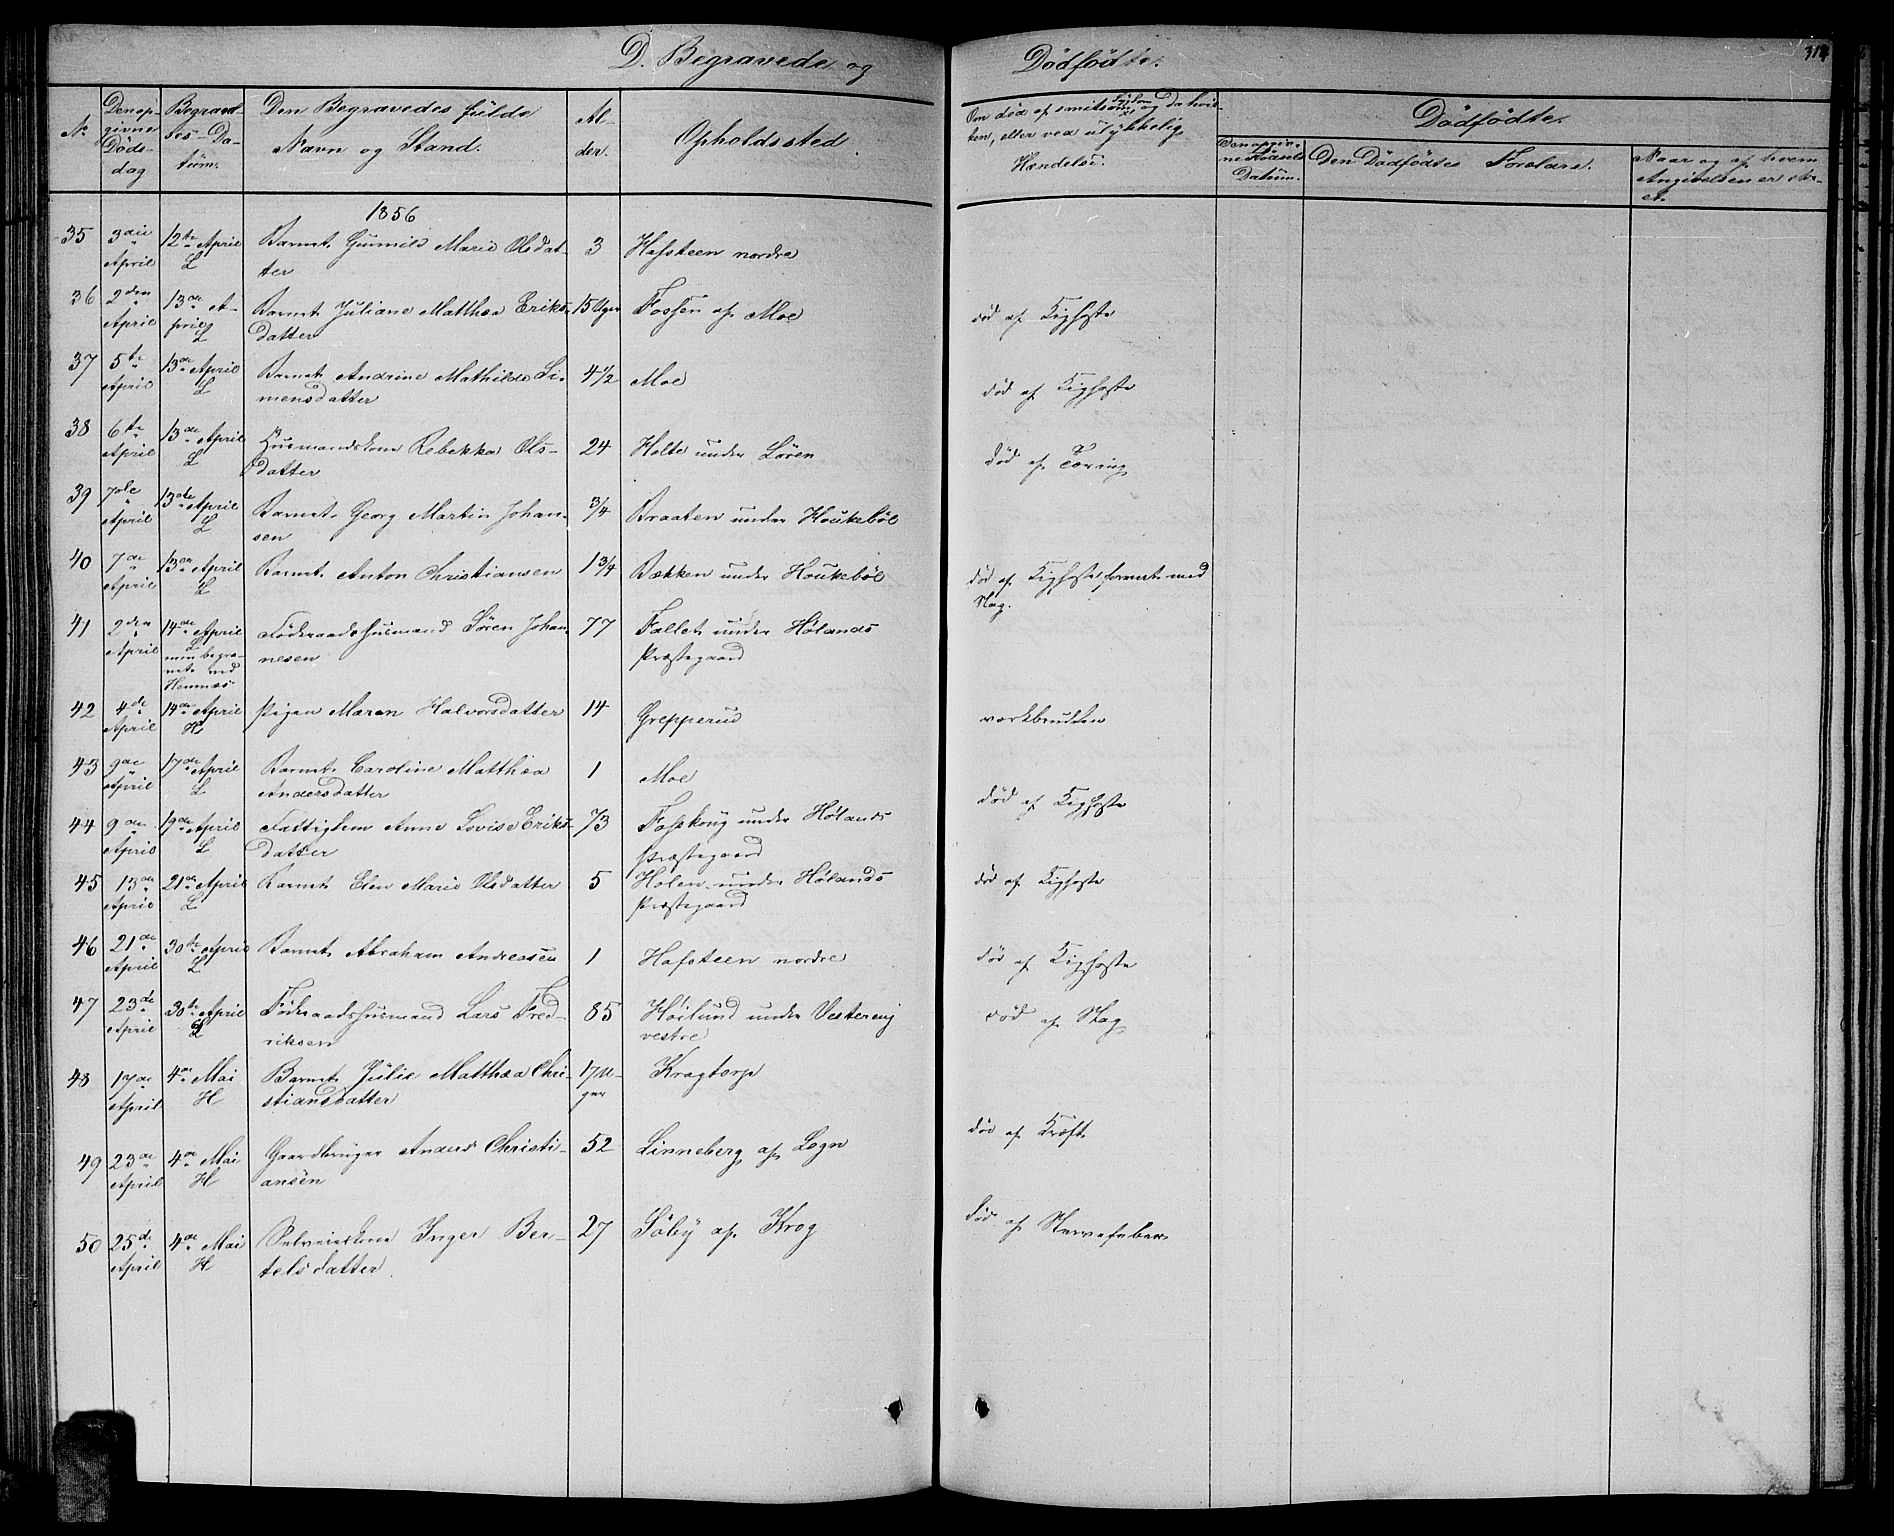 D. Begravede og Dödfödte.
314
No
Den opgivne Döds-dag
Begravelses-Datüm.
Den Begravedes fülde Navn og Stand.
Alder.
Opholdssted
Om död af smitsom Sygdom og da hvilken, eller ved ulykkelig Hændelse:
Dödfödte.
Den opgivne Födsels Datüm.
Den Dödfödtes Forældre.
Naar og af hvem Angivelsen er sket.
1856
35 3die April 12te April L Barnet Gunnild Marie Olsdatter 3 Hafsteen nordre
36 2den April 13de April L Barnet Juliane Matthea Eriksdatter 15 Uger Fossen af Moe död af Kighoste
37 5te April 13de April L Barnet Andrine Mathilde Simensdatter 4 1/2 Moe död af Kighoste
38 6te April 13de April L Husmandskone Rebekka Olsdatter 24 Holte under Lören död af Tæring
39 7de April 13de April L Barnet Georg Martin Johansen 3/4 Braaten under Houkeböl
40 7de April 13de April L Barnet Anton Christiansen 1 3/4 Bækken under Houkeböl död af Kighoste forenet med Slag.
41 2den April 14de April L men begravet ved Hemnæs Föderaadshusmand Sören Johannesen 77 Fallet under Hölands Præstegaard
42 4de April 14de April H Pigen Maren Halvorsdatter 14 Grepperud værkbrudden
43 9de April 17de April L Barnet Caroline Matthea Andersdatter 1 Moe död af Kighoste
44 9de April 19de April L Fattiglem Anne Lovise Eriksdatter 73 Fosskoug under Hölands Præstegaard
45 13de April 21de April L Barnet Elen Marie Olsdatter 5 Holen under Hölands Præstegaard död af Kighoste
46 21de April 30te April L Barnet Abraham Andreasen 1 Hafsteen nordre död af Kighoste
47 23de April 30te April L Föderaadshusmand Lars Fredriksen 85 Höilund under Vestereng vestre död af Slag
48 17de April 4de Mai H Barnet Julie Matthea Christiansdatter 17 Uger Kragtorp
49 23de April 4de Mai H Gaardbruger Anders Christiansen 52 Linneberg af Legn död af Kræft
50 25de April 4de Mai H Selveierkone Inger Bertelsdatter 27 Söby af Krog död af Nervefeber